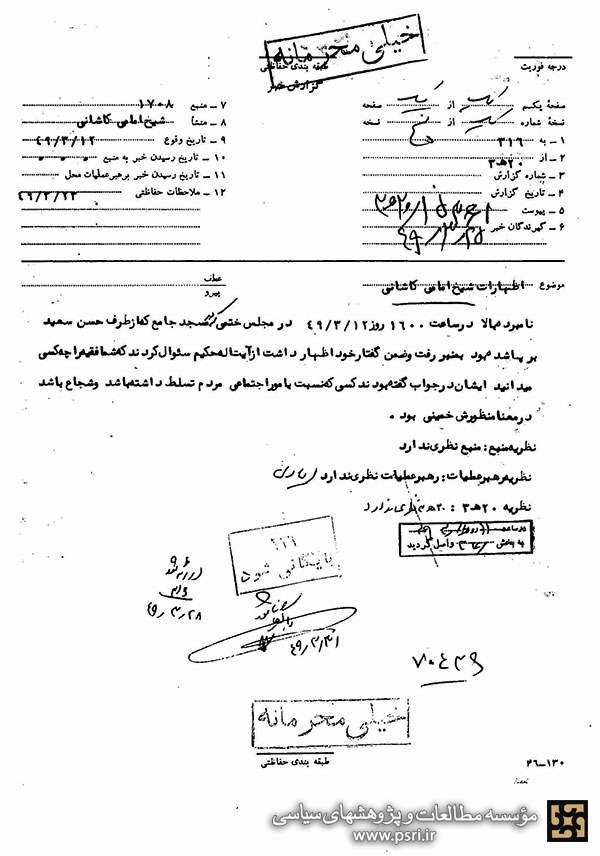 خیلی محرمانه
درجه فوریت
طبقه بندی حفاظتی
گزارش خبر
صفحهٔ یکم یک از یک صفحه
نسخهٔ شماره یک از پنج نسخه
۱ – به ۳۱۶
۲ – از ۲۰هـ۳
۳ – شماره گزارش
۴ – تاریخ گزارش
۵ – پیوست
۶ – گیرندگان خبر
۷ – منبع ۱۷۰۸
۸ – منشأ شیخ امامی کاشانی
۹ – تاریخ وقوع ۴۹/۳/۱۲
۱۰ – تاریخ رسیدن خبر به منبع
۱۱ – تاریخ رسیدن خبر برهبر عملیات محل
۱۲ – ملاحظات حفاظتی
۴۹/۳/۲۳
موضوع اظهارات شیخ امامی کاشانی
عطف
پیرو
نامبرده بالا در ساعت ۱۶۰۰ روز ۴۹/۳/۱۲ در مجلس ختمی که در مسجد جامع که از طرف حسن سعید
برپا شده بود بمنبر رفت وضمن گفتار خود اظهار داشت از آیت اله حکیم سئوال کردند که شما فقیه را چه کسی
میدانید ایشان در جواب گفته بودند کسی که نسبت بامور اجتماعی مردم تسلط داشته باشد وشجاع باشد
در معنا منظورش خمینی بود .
نظریه منبع : منبع نظری ندارد
نظریه رهبر عملیات : رهبر عملیات نظری ندارد
نظریه ۲۰هـ۳ : ۲۰هـ۳ نظری ندارد
در ساعت روز
به بخش ۳۱۶ واصل گردید
بایگانی شود
۴۹/۳/۲۸
۴۹/۳/۳۱
۷۰۴۳۶
خیلی محرمانه
طبقه بندی حفاظتی
۴۶–۱۳۰
مؤسسه مطالعات و پژوهشهای سیاسی
www.psri.ir